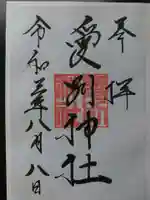 奉拝
愛別神社
令和三年八月八日